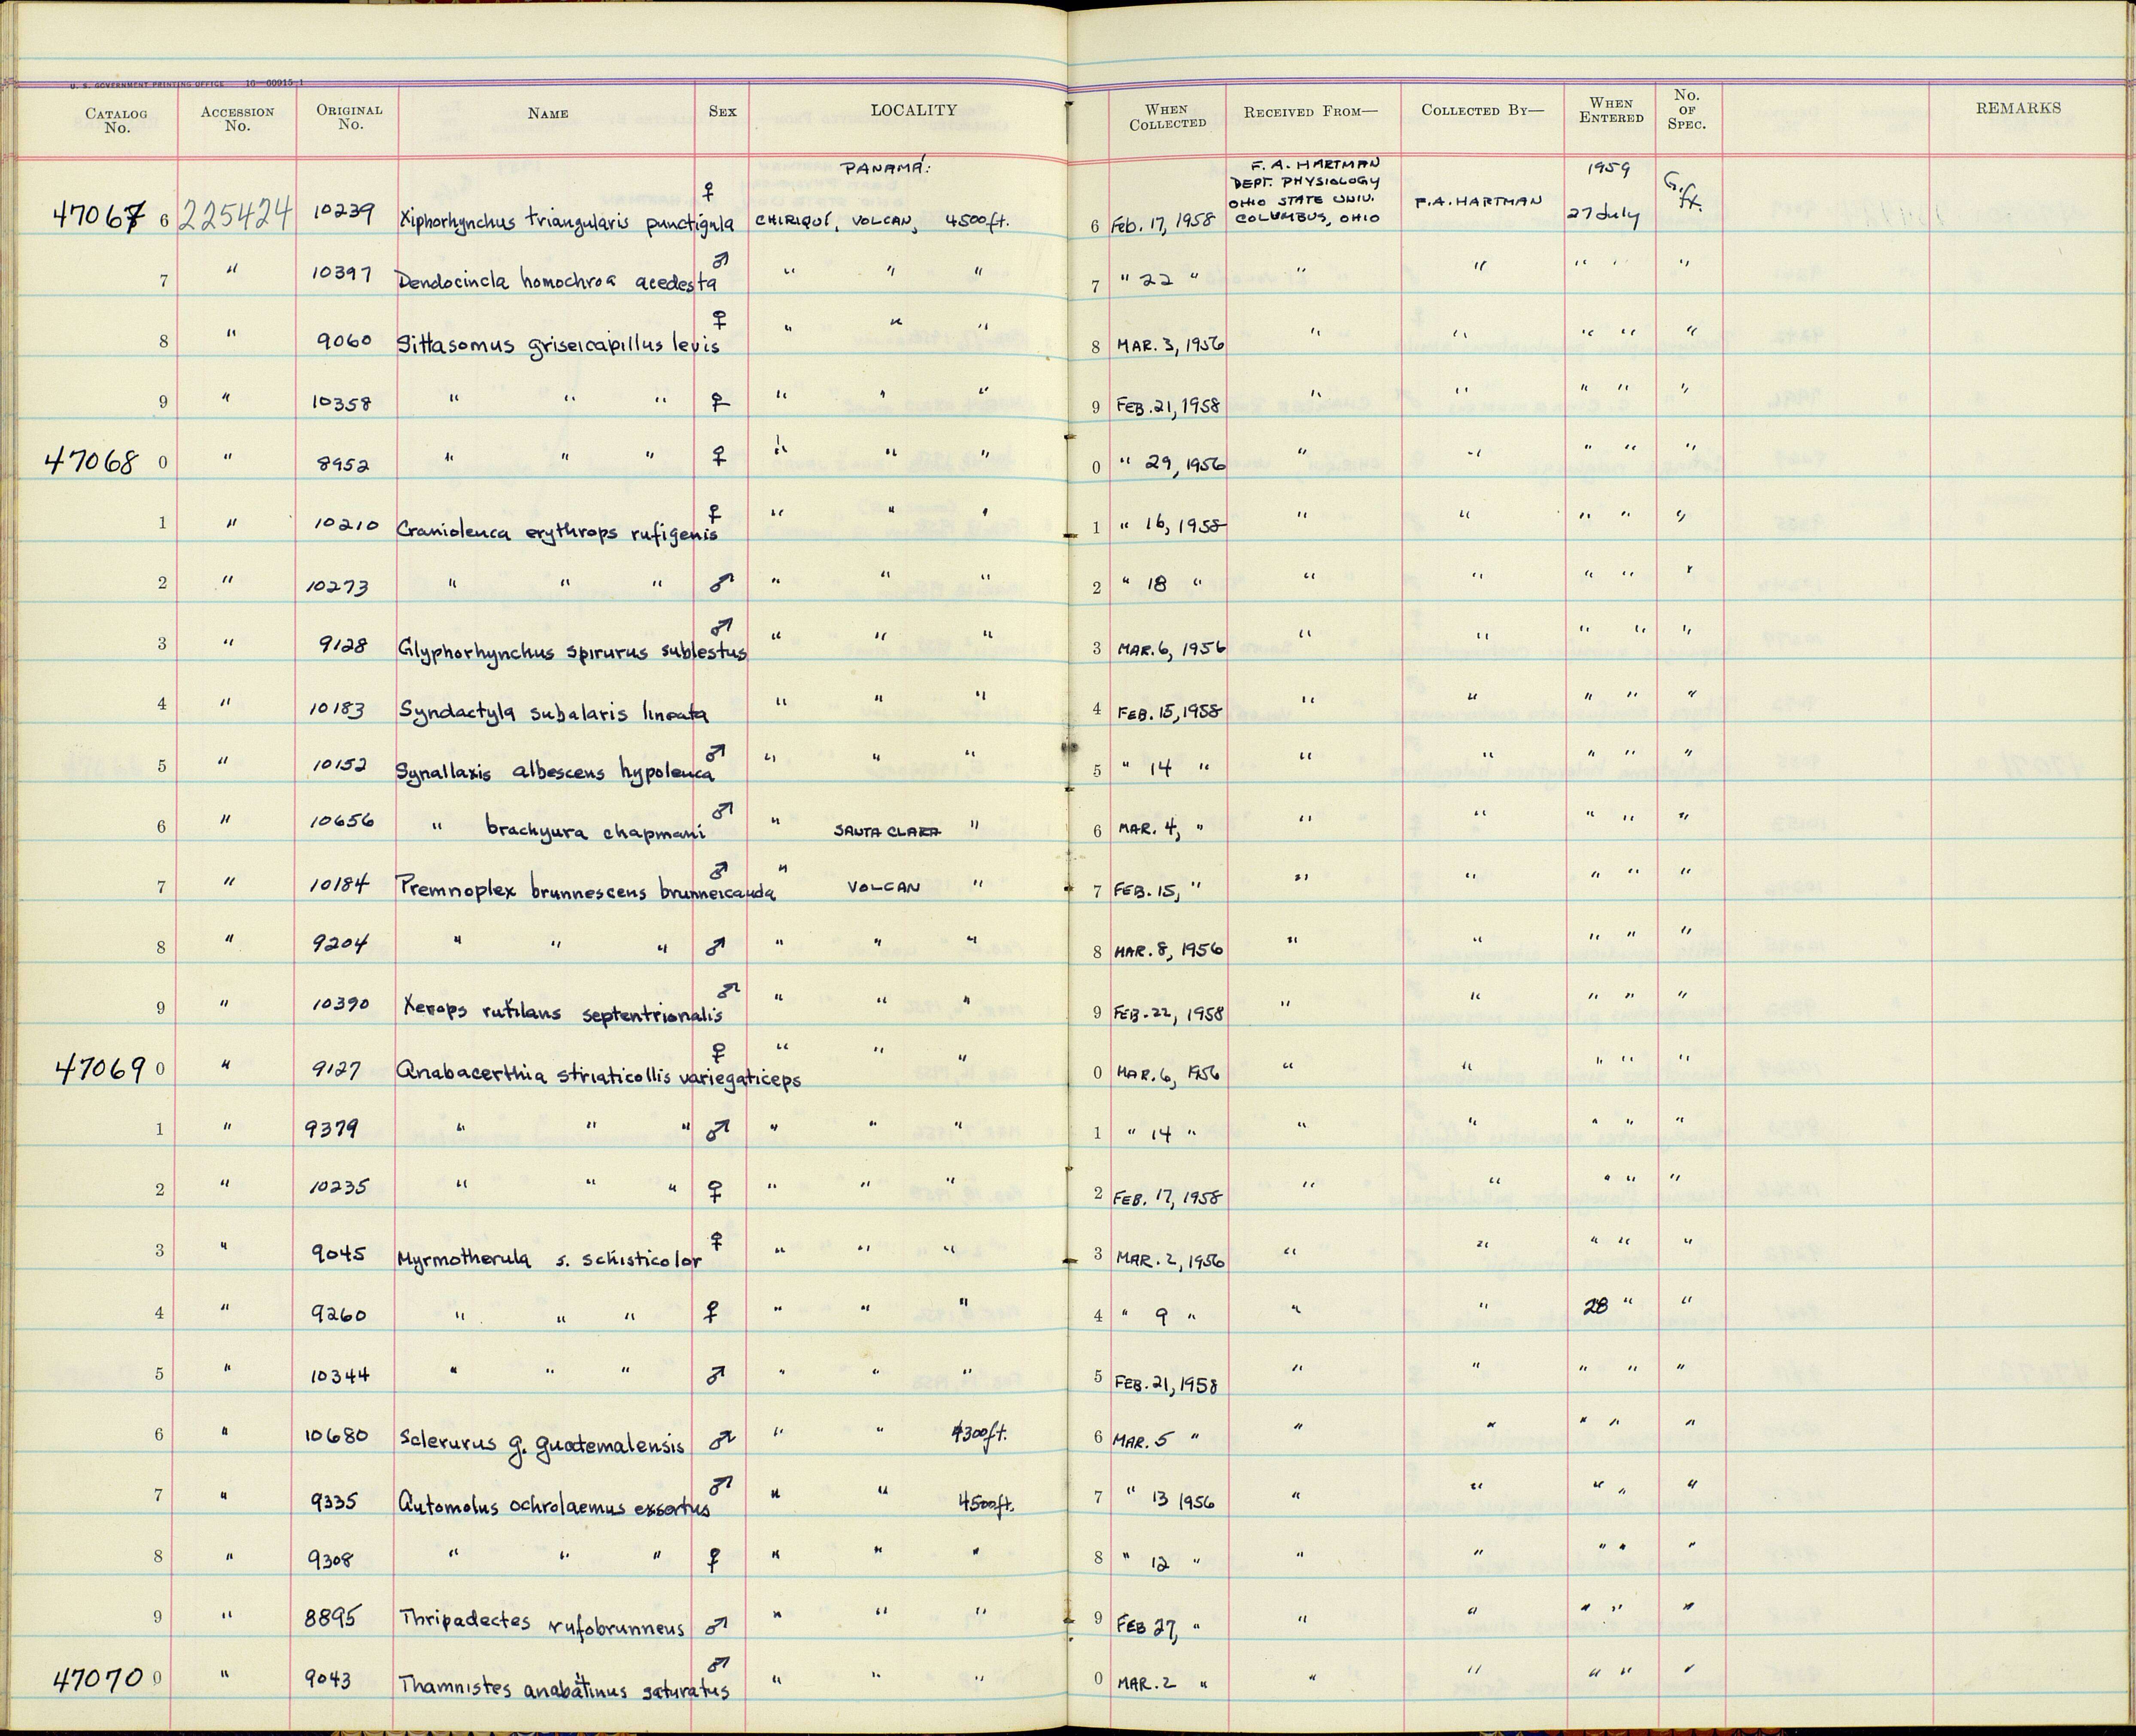 U. S. GOVERNMENT PRINTING OFFICE 16—60915-1
CATALOG No. ACCESSION No. ORIGINAL No. NAME SEX LOCALITY WHEN COLLECTED RECEIVED FROM— COLLECTED BY— WHEN ENTERED No. OF SPEC. REMARKS
PANAMÁ: F. A. HARTMAN DEPT. PHYSIOLOGY OHIO STATE UNIV. COLUMBUS, OHIO 1959
47067 6 225424 10239 Xiphorhynchus triangularis punctigula ♀ CHIRIQUÍ, VOLCAN, 4500ft. 6 Feb. 17, 1958 F.A. HARTMAN 27 July
7 " 10397 Dendocincla homochroa acedesta ♂ " " " 7 " 22 " " " " " "
8 " 9060 Sittasomus griseicapillus levis ♀ " " " 8 MAR. 3, 1956 " " " " "
9 " 10358 " " " ♀ " " " 9 FEB. 21, 1958 " " " " "
47068 0 " 8952 " " " ♀ " " " 0 " 29, 1956 " " " " "
1 " 10210 Cranioleuca erythrops rufigenis ♀ " " " 1 " 16, 1958 " " " " "
2 " 10273 " " " ♂ " " " 2 " 18 " " " " " "
3 " 9128 Glyphorhynchus spirurus sublestus ♂ " " " 3 MAR. 6, 1956 " " " " "
4 " 10183 Syndactyla subalaris lineata " " " 4 FEB. 15, 1958 " " " " "
5 " 10152 Synallaxis albescens hypoleuca ♂ " " " 5 " 14 " " " " " "
6 " 10656 " brachyura chapmani ♂ " SANTA CLARA " 6 MAR. 4, " " " " " "
7 " 10184 Premnoplex brunnescens brunneicauda ♂ " VOLCAN " 7 FEB. 15, " " " " " "
8 " 9204 " " " ♂ " " " 8 MAR. 8, 1956 " " " " "
9 " 10390 Xenops rutilans septentrionalis ♂ " " " 9 FEB. 22, 1958 " " " " "
47069 0 " 9127 Anabacerthia striaticollis variegaticeps ♀ " " " 0 MAR. 6, 1956 " " " " "
1 " 9379 " " " ♂ " " " 1 " 14 " " " " " "
2 " 10235 " " " ♀ " " " 2 FEB. 17, 1958 " " " " "
3 " 9045 Myrmotherula s. schisticolor ♀ " " " 3 MAR. 2, 1956 " " " " "
4 " 9260 " " " ♀ " " " 4 " 9 " " " 28 " "
5 " 10344 " " " ♂ " " " 5 FEB. 21, 1958 " " " " "
6 " 10680 Sclerurus g. guatemalensis ♂ " " 4300ft. 6 MAR. 5 " " " " " "
7 " 9335 Automolus ochrolaemus exsertus ♂ " " 4500ft. 7 " 13 1956 " " " " "
8 " 9308 " " " ♀ " " " 8 " 12 " " " " " "
9 " 8895 Thripadectes rufobrunneus ♂ " " " 9 FEB 27, " " " " " "
47070 0 " 9043 Thamnistes anabatinus saturatus ♂ " " " 0 MAR. 2 " " " " " "